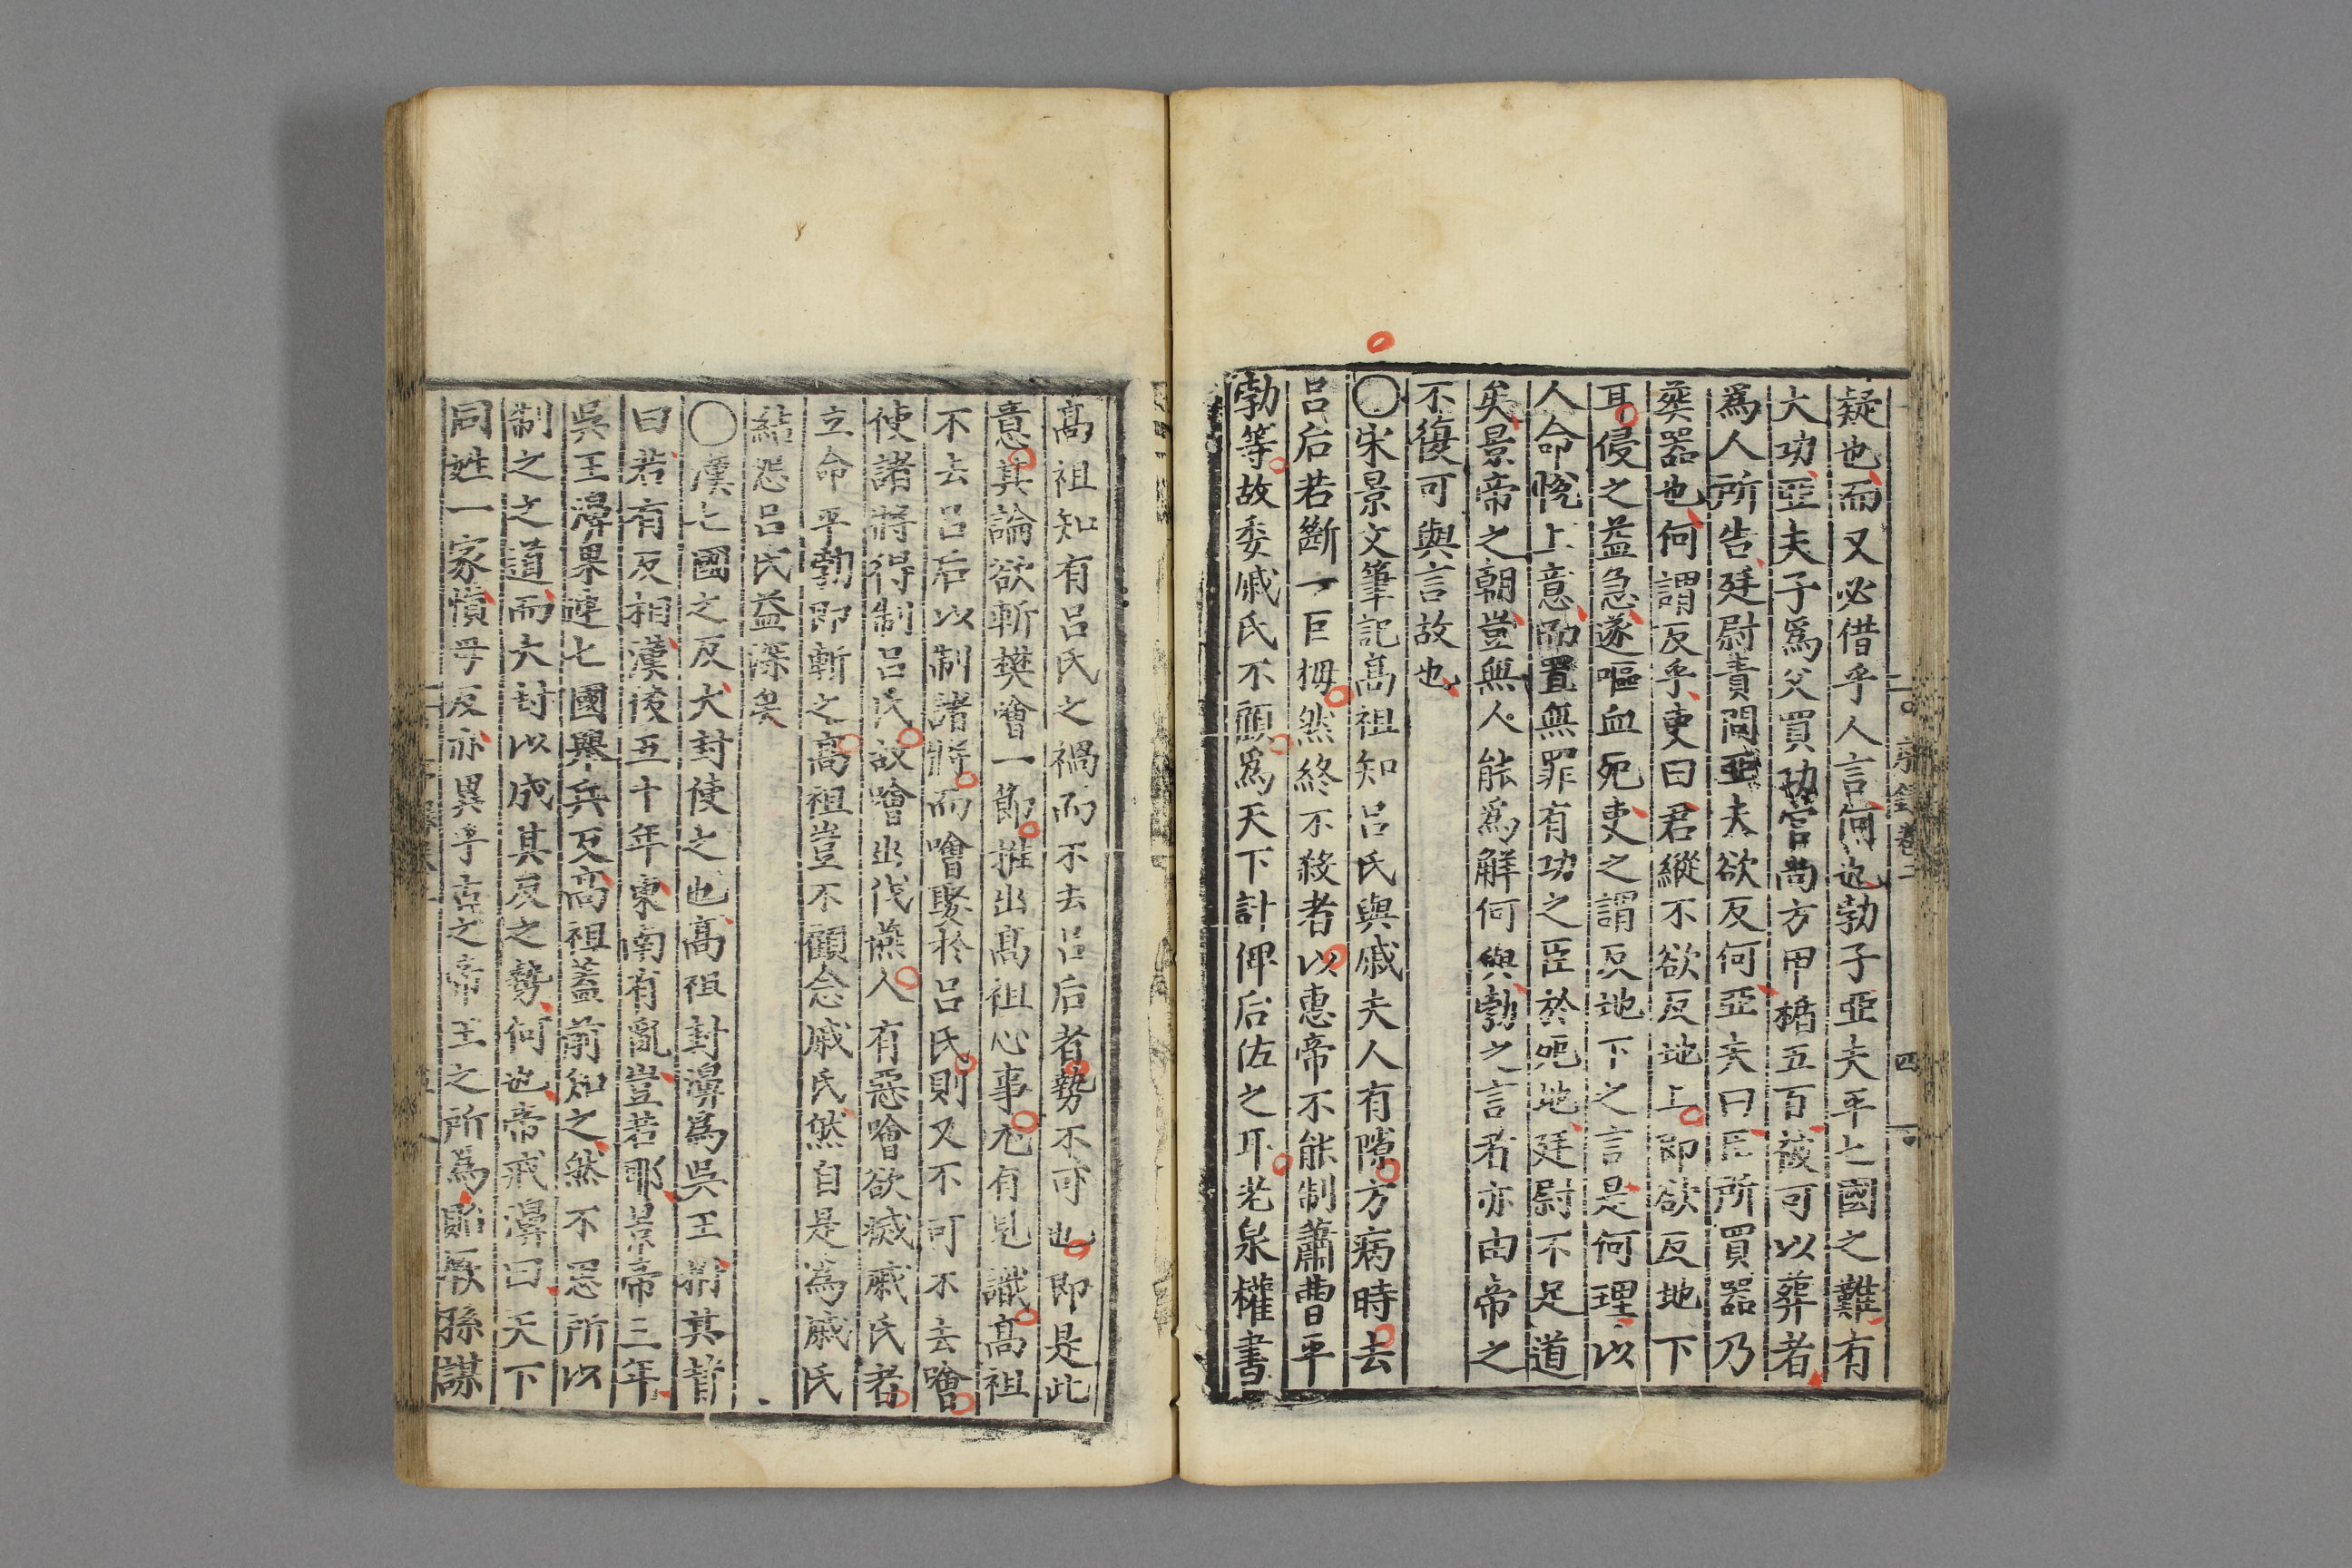 疑也而又必借乎人言何也勃子亞夫平七國之難有
大功亞夫子爲父買功官尚方甲楯五百被可以葬者
爲人所告廷尉責問亞夫欲反何亞夫曰臣所買器乃
葬器也何謂反乎吏曰君縱不欲反地上即欲反地下
耳侵之益急遂嘔血死吏之謂反地下之言是何理以
人命悅上意而置無罪有功之臣於死地廷尉不足道
矣景帝之朝豈無人能爲解何與勃之言者亦由帝之
不復可與言故也
〇宋景文筆記高祖知呂氏與戚夫人有隙方病時去
呂后若斷一巨拇然終不殺者以惠帝不能制蕭曹平
勃等故委戚氏不顧爲天下計俾后佐之耳老泉權書
高祖知有呂氏之禍而不去呂后者勢不可也即是此
意其論欲斬樊噲一節推出高祖心事尤有見識高祖
不去呂后以制諸將而噲娶於呂氏則又不可不去噲
使諸將得制呂氏故噲出伐燕人有惡噲欲滅戚氏者
立命平勃即斬之高祖豈不顧念戚氏然自是爲戚氏
結怨呂氏益深矣
〇漢七國之反大封使之也高祖封濞爲吳王拊其背
曰若有反相漢後五十年東南有亂豈若耶景帝三年
吳王濞果連七國舉兵反高祖蓋前知之然不思所以
制之之道而大封以成其反之勢何也帝戒濞曰天下
同姓一家愼毋反亦異乎古之帝王之所爲貽厥孫謀
卷二
四